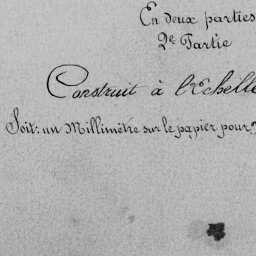 En deux parties
2e Partie
Construit à l'Echelle
Soit: un Millimètre sur le papier pour